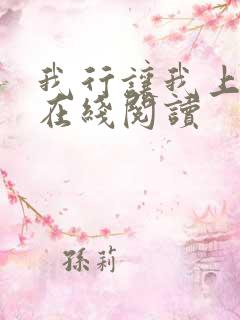 我行讓我上
在綫閱讀
孫莉